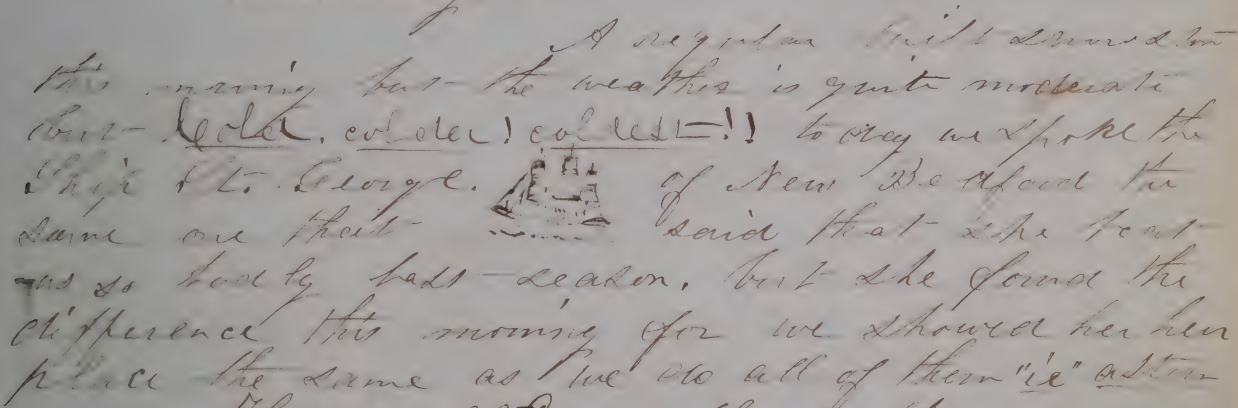 A regular built snowstorm
this morning but the weather is quite moderate
but Cold, colder! coldest!! to day we spoke the
Ship St. George. of New Bedford the
same one that said that she beat
us so badly last season, but she found the
difference this morning for we showed her her
place the same as we do all of them "ie" astern